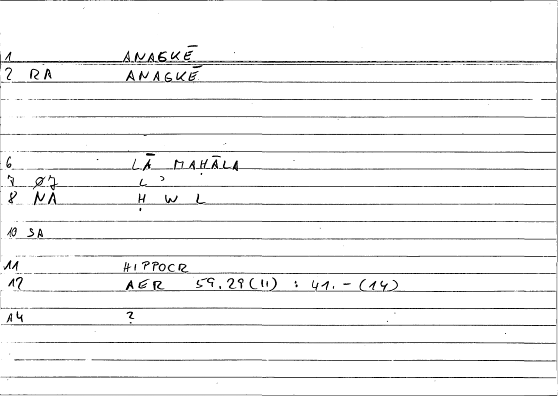 1 ANAGKĒ
2 RA ANAGKĒ
6 LĀ MAḤĀLA
7 Ø7 L ʾ
8 NA Ḥ W L
10 SA
11 HIPPOCR
12 AER 59.29(11) : 41.-(14)
14 ?